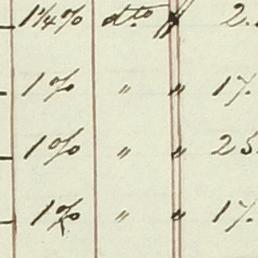 1¼% dto " 2.
1% " " 17.
1% " " 25
1% " " 17.